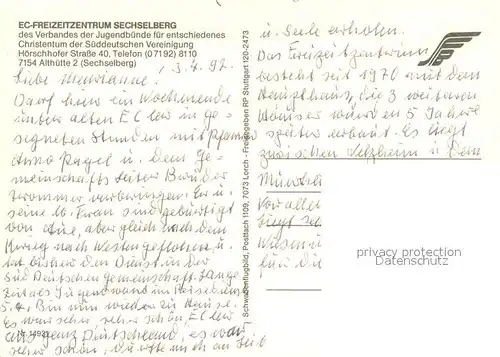 EC-FREIZEITZENTRUM SECHSELBERG
des Verbandes der Jugendbünde für entschiedenes
Christentum der Süddeutschen Vereinigung
Hörschhofer Straße 40, Telefon (07192) 8110
7154 Althütte 2 (Sechselberg)
3.4.92
Liebe Marianne.
Darf hier ein Wochenende
unter alten EC ler in ge-
segneten Stunden mit Pfarrer
Arno Pagel u. dem Ge-
meinschafts leiter Bruder
verbringen. Er u.
seine Frau sind gebürtigt
von aber gleich nach dem
Krieg nach Westen geflohen u.
hat bisher den Dienst in der
Süd Deutschen Gemeinschaft. Lange
Zeit als Jugendwart im Reisedienst
5.4. Bin nun wieder zu Hause.
Es war sehr sehr schön, EC ler
aus ganz Deutschland, es war
sehr schön, an Leib
u. Seele erholen.
Das Freizeitzentrum
besteht seit 1970 mit dem
Haupthaus, die 3 weiteren
Häuser wurden 5 Jahre
später erbaut. Es liegt
zwischen Welzheim u. dem
Vor alle
liegt seh
für die
Schwabenflugbild, Postfach 1109, 7073 Lorch - Freigegeben RP Stuttgart 120-2473
privacy protection
Datenschutz